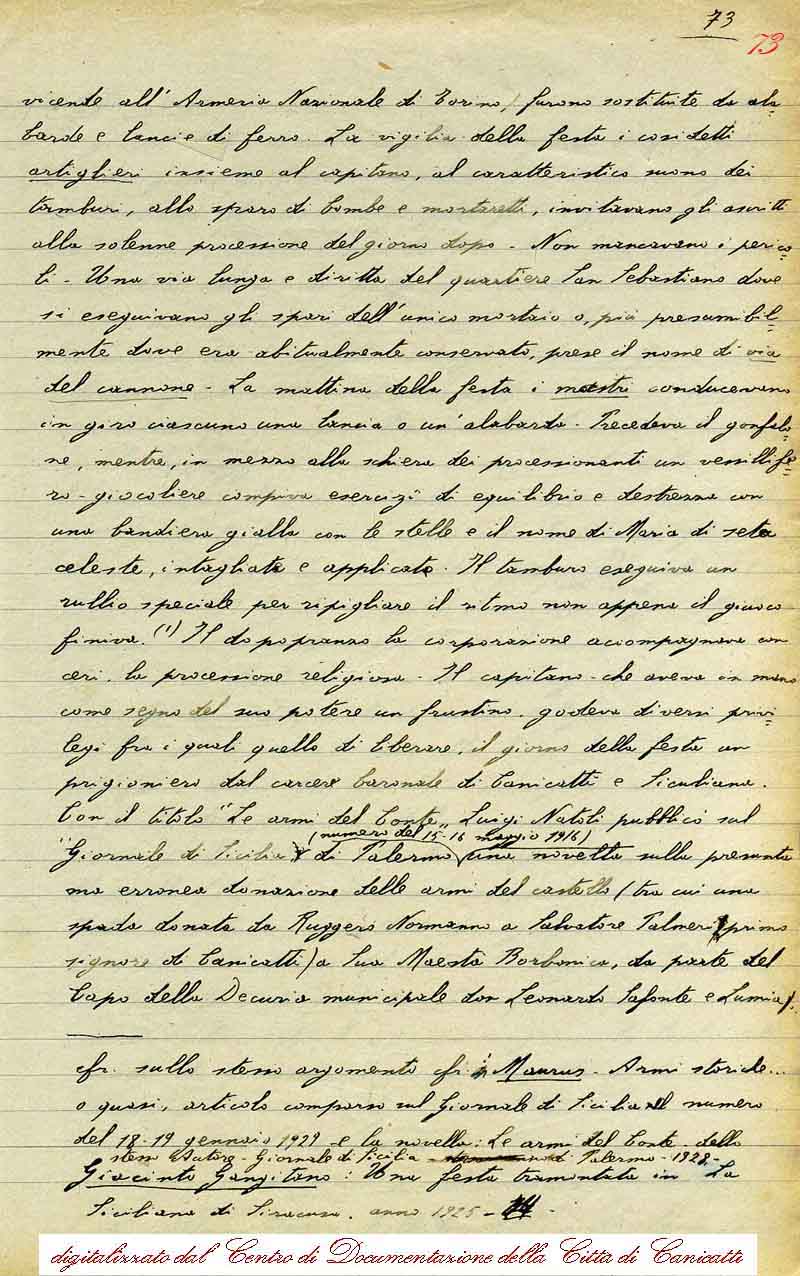 73
73
vicende all'Armeria Nazionale di Torino, furono sostituite da ala=
barde e lancie di ferro. La vigilia della festa i cosidetti
artiglieri insieme al capitano, al caratteristico suono dei
tamburi, allo sparo di bombe e mortaretti, invitavano gli ascritti
alla solenne processione del giorno dopo - Non mancavano i perico=
li - Una via lunga e diritta del quartiere San Sebastiano dove
si eseguivano gli spari dell'unico mortaio o, più presumibil=
mente dove era abitualmente conservato, prese il nome di via
del cannone - La mattina della festa i mastri conducevano
in giro ciascuno una lancia o un'alabarda. Precedeva il gonfalo=
ne, mentre, in mezzo alla schiera dei processionanti un vessillife=
ro-giocoliere compiva esercizi di equilibrio e destrezza con
una bandiera gialla con le stelle e il nome di Maria di seta
celeste, intagliata e applicata. Il tamburo eseguiva un
rullio speciale per ripigliare il ritmo non appena il giuoco
finiva. (1) Il dopopranzo la corporazione accompagnava con
ceri, la processione religiosa - Il capitano - che aveva in mano
come segno del suo potere un frustino. godeva diversi privi=
legi fra i quali quello di liberare, il giorno della festa un
prigioniero dal carcere baronale di Canicattì e Siculiana.
Con il titolo "Le armi del Conte" Luigi Natoli pubblicò sul
(numero del 15-16 maggio 1916)
"Giornale di Sicilia" di Palermo una novella sulla presunta
ma erronea donazione delle armi del castello (tra cui una
spada donata da Ruggero Normanno a Salvatore Palmeri primo
signore di Canicattì) a Sua Maestà Borbonica, da parte del
Capo della Decuria municipale don Leonardo Safonte e Lumia).
cfr. sullo stesso argomento cfr. Maurus - Armi storiche...
o quasi, articolo comparso sul Giornale di Sicilia nel numero
del 18-19 gennaio 1929 - e la novella: Le armi del Conte dello
stesso Autore - Giornale di Sicilia di Palermo - 1928 -
Giacinto Gangitano: Una festa tramontata in La
Siciliana di Siracusa. anno 1925 -
digitalizzato dal Centro di Documentazione della Città di Canicattì